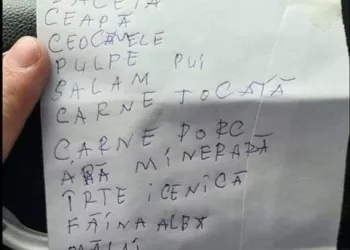 CEAPĂ
CEOCANELE
PULPE PUI
SALAM
CARNE TOCATĂ
CARNE PORC
APĂ MINERAPĂ
ÎRTE ICENICĂ
FĂINA ALBA
MĂLAI